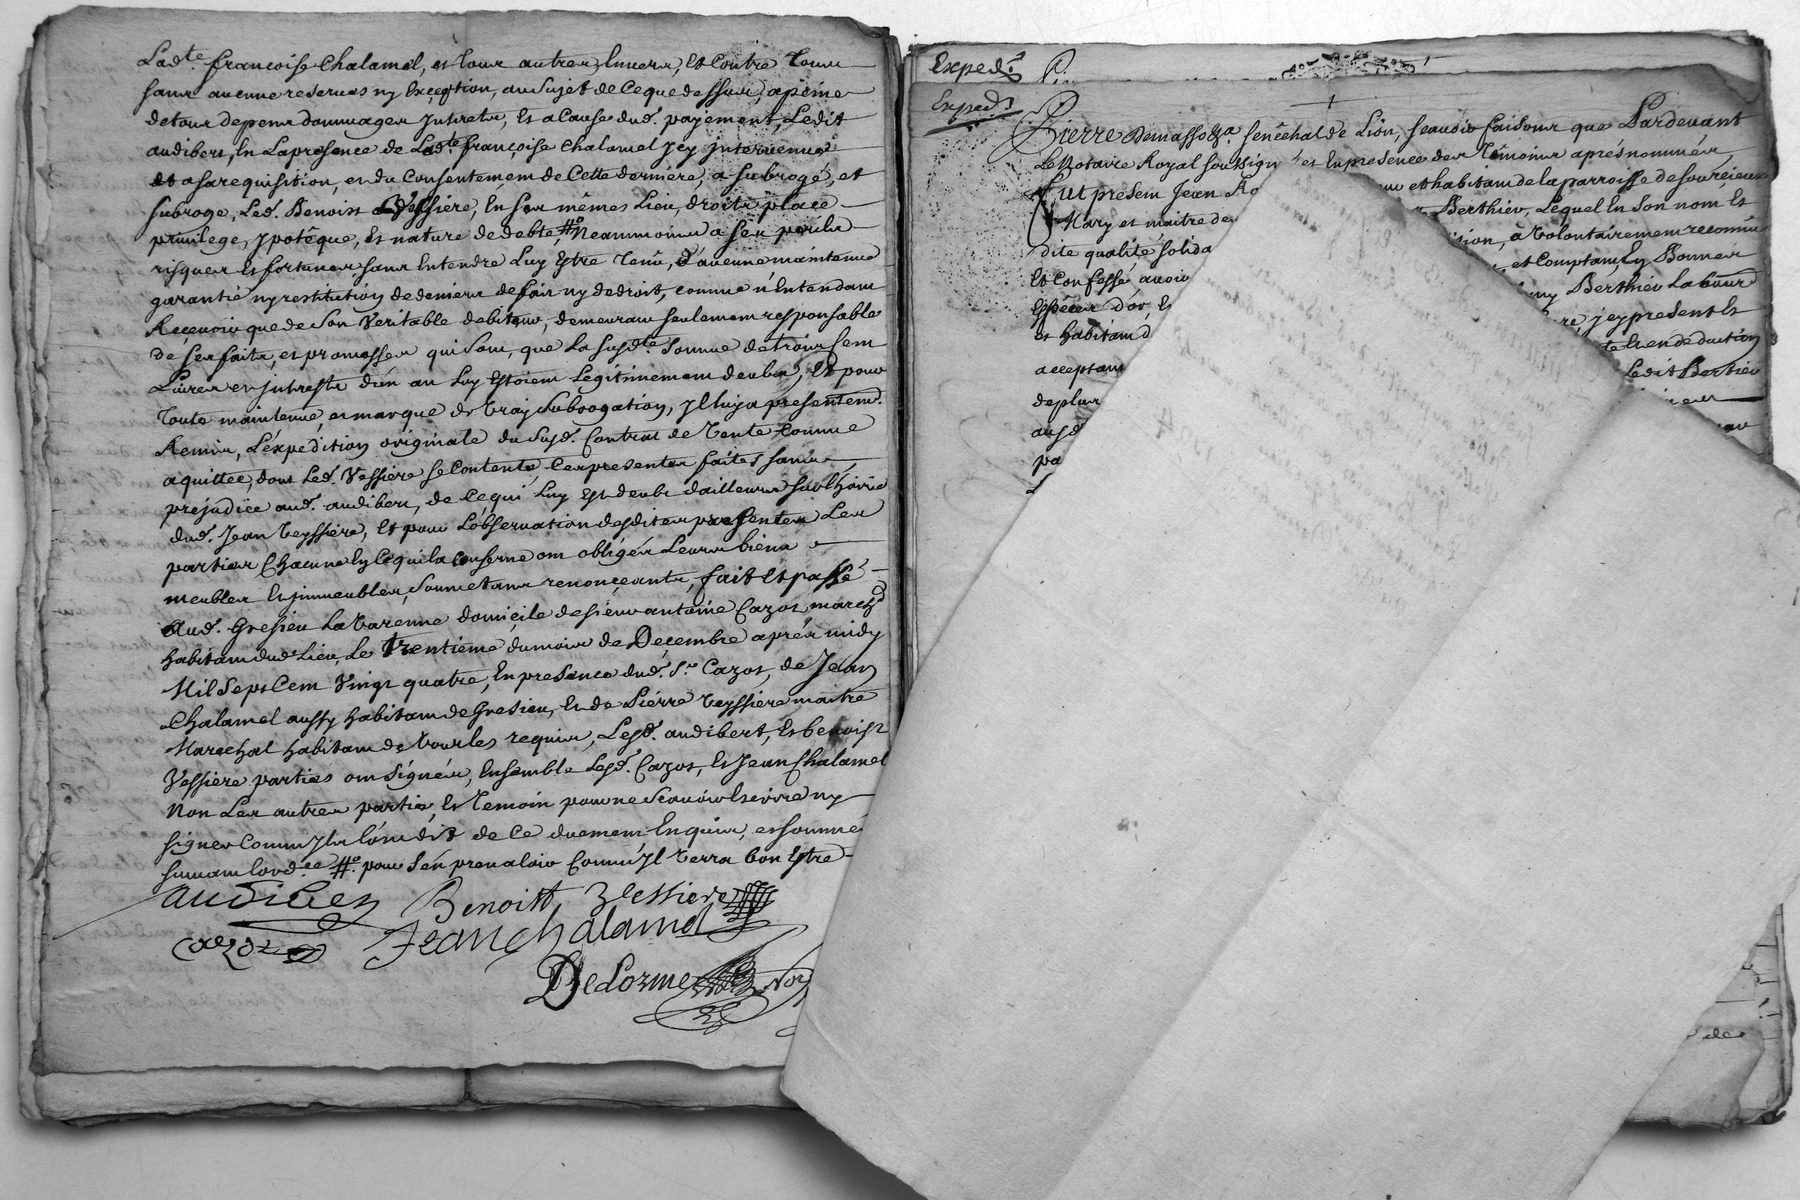 Lad.te francoise Chalamel, et tous autres Envers, Et Contre Tous
sans aucune reserves ny Exception, au Sujet de Ce que dessus, a peine
de tous depens dommages Interets, Et a Cause dud. payement, Ledit
audibert, En La presence de Lad.te françoise Chalamel Jcy Intervenue
et a sa requisition, et du Consentement de Cette derniere, a subrogé, et
subroge, Led. Benoist Veyssiere, En Ses mêmes Lieu, droits, place
privilege, ypotêque, Et nature de debte, #o Neammoins a ses perils
risques Et fortunes sans Entendre Luy Estre Tenû, d'aucune maintenue
garantie ny restitution de deniers de fait ny de droit, comme n'Entendant
Reçevoir que de Son Veritable debiteur, demeurant seulement responsable
de ses faits, et promesses qui sont, que La susd.te Somme de trois Cent
Livres et jnterests d'un an Luy Estoient Legitimement deubs, Et pour
Toute maintenue, et marque de Vray Subrogation, Jl luy a presentem.t
Remis, L'expedition originale du Susd. Contrat de Vente Comme
aquittée, dont Led. Vessiere se Contente, Ces presentes faites sans
prejudice aud. audibert, de Ce qui Luy Est deube d'ailleurs sur l'hoirie
dud. Jean Veyssiere, Et pour L'observation desdites presentes Les
parties Chacune En Ce qui la Conserne ont obligés Leurs biens
meubles Et jmmeubles, soumetants renonçeants, fait Et passé
Aud. Gresieu La Varenne domiçile de sieur antoine Cazot march.d
habitant dud. Lieu, Le Trentieme du mois de Deçembre aprés midy
Mil Sept Cent Vingt quatre, En presence dud. S.r Cazot, de Jean
Chalamel aussy habitant de Gresieu, Et de Pierre Veyssiere maitre
Marechal habitant de Vourles requis, Lesd. audibert, Et benoist
Vessiere parties ont signés, Ensemble Lesd. Cazot, Et Jean Chalamel
Non Les autres parties, Et Temoin pour ne Scavoir Escrire ny
signer Comm'Jls l'ont dit de Ce duement Enquis, et sommé
suivant l'ord.ce #o pour S'en prevaloir Comm'Jl Verra bon Estre
audiber Benoist Vessiere
Jean Chalamel
DeLorme No.re
Exped.
Exped.
Pierre Demasso &.a Senêchal de Lion, Scavoir faisons que Pardevant
Le Notaire Royal Soussigné et En presence des Têmoins aprés nommés
Fut present Jean Ro et habitant de la parroisse de sourcieux
Mary et maitre de Berthier, Lequel En Son nom Et
dite qualité solida ision, a Volontairement reconnu
Et Confessé avoir et Comptant, En Bonnes
Espéces d'or, Et Berthier Labour
Et habitant d jcy present Et
acceptant te Et en deduction
de plus Ledit Bertier
ausd
pa